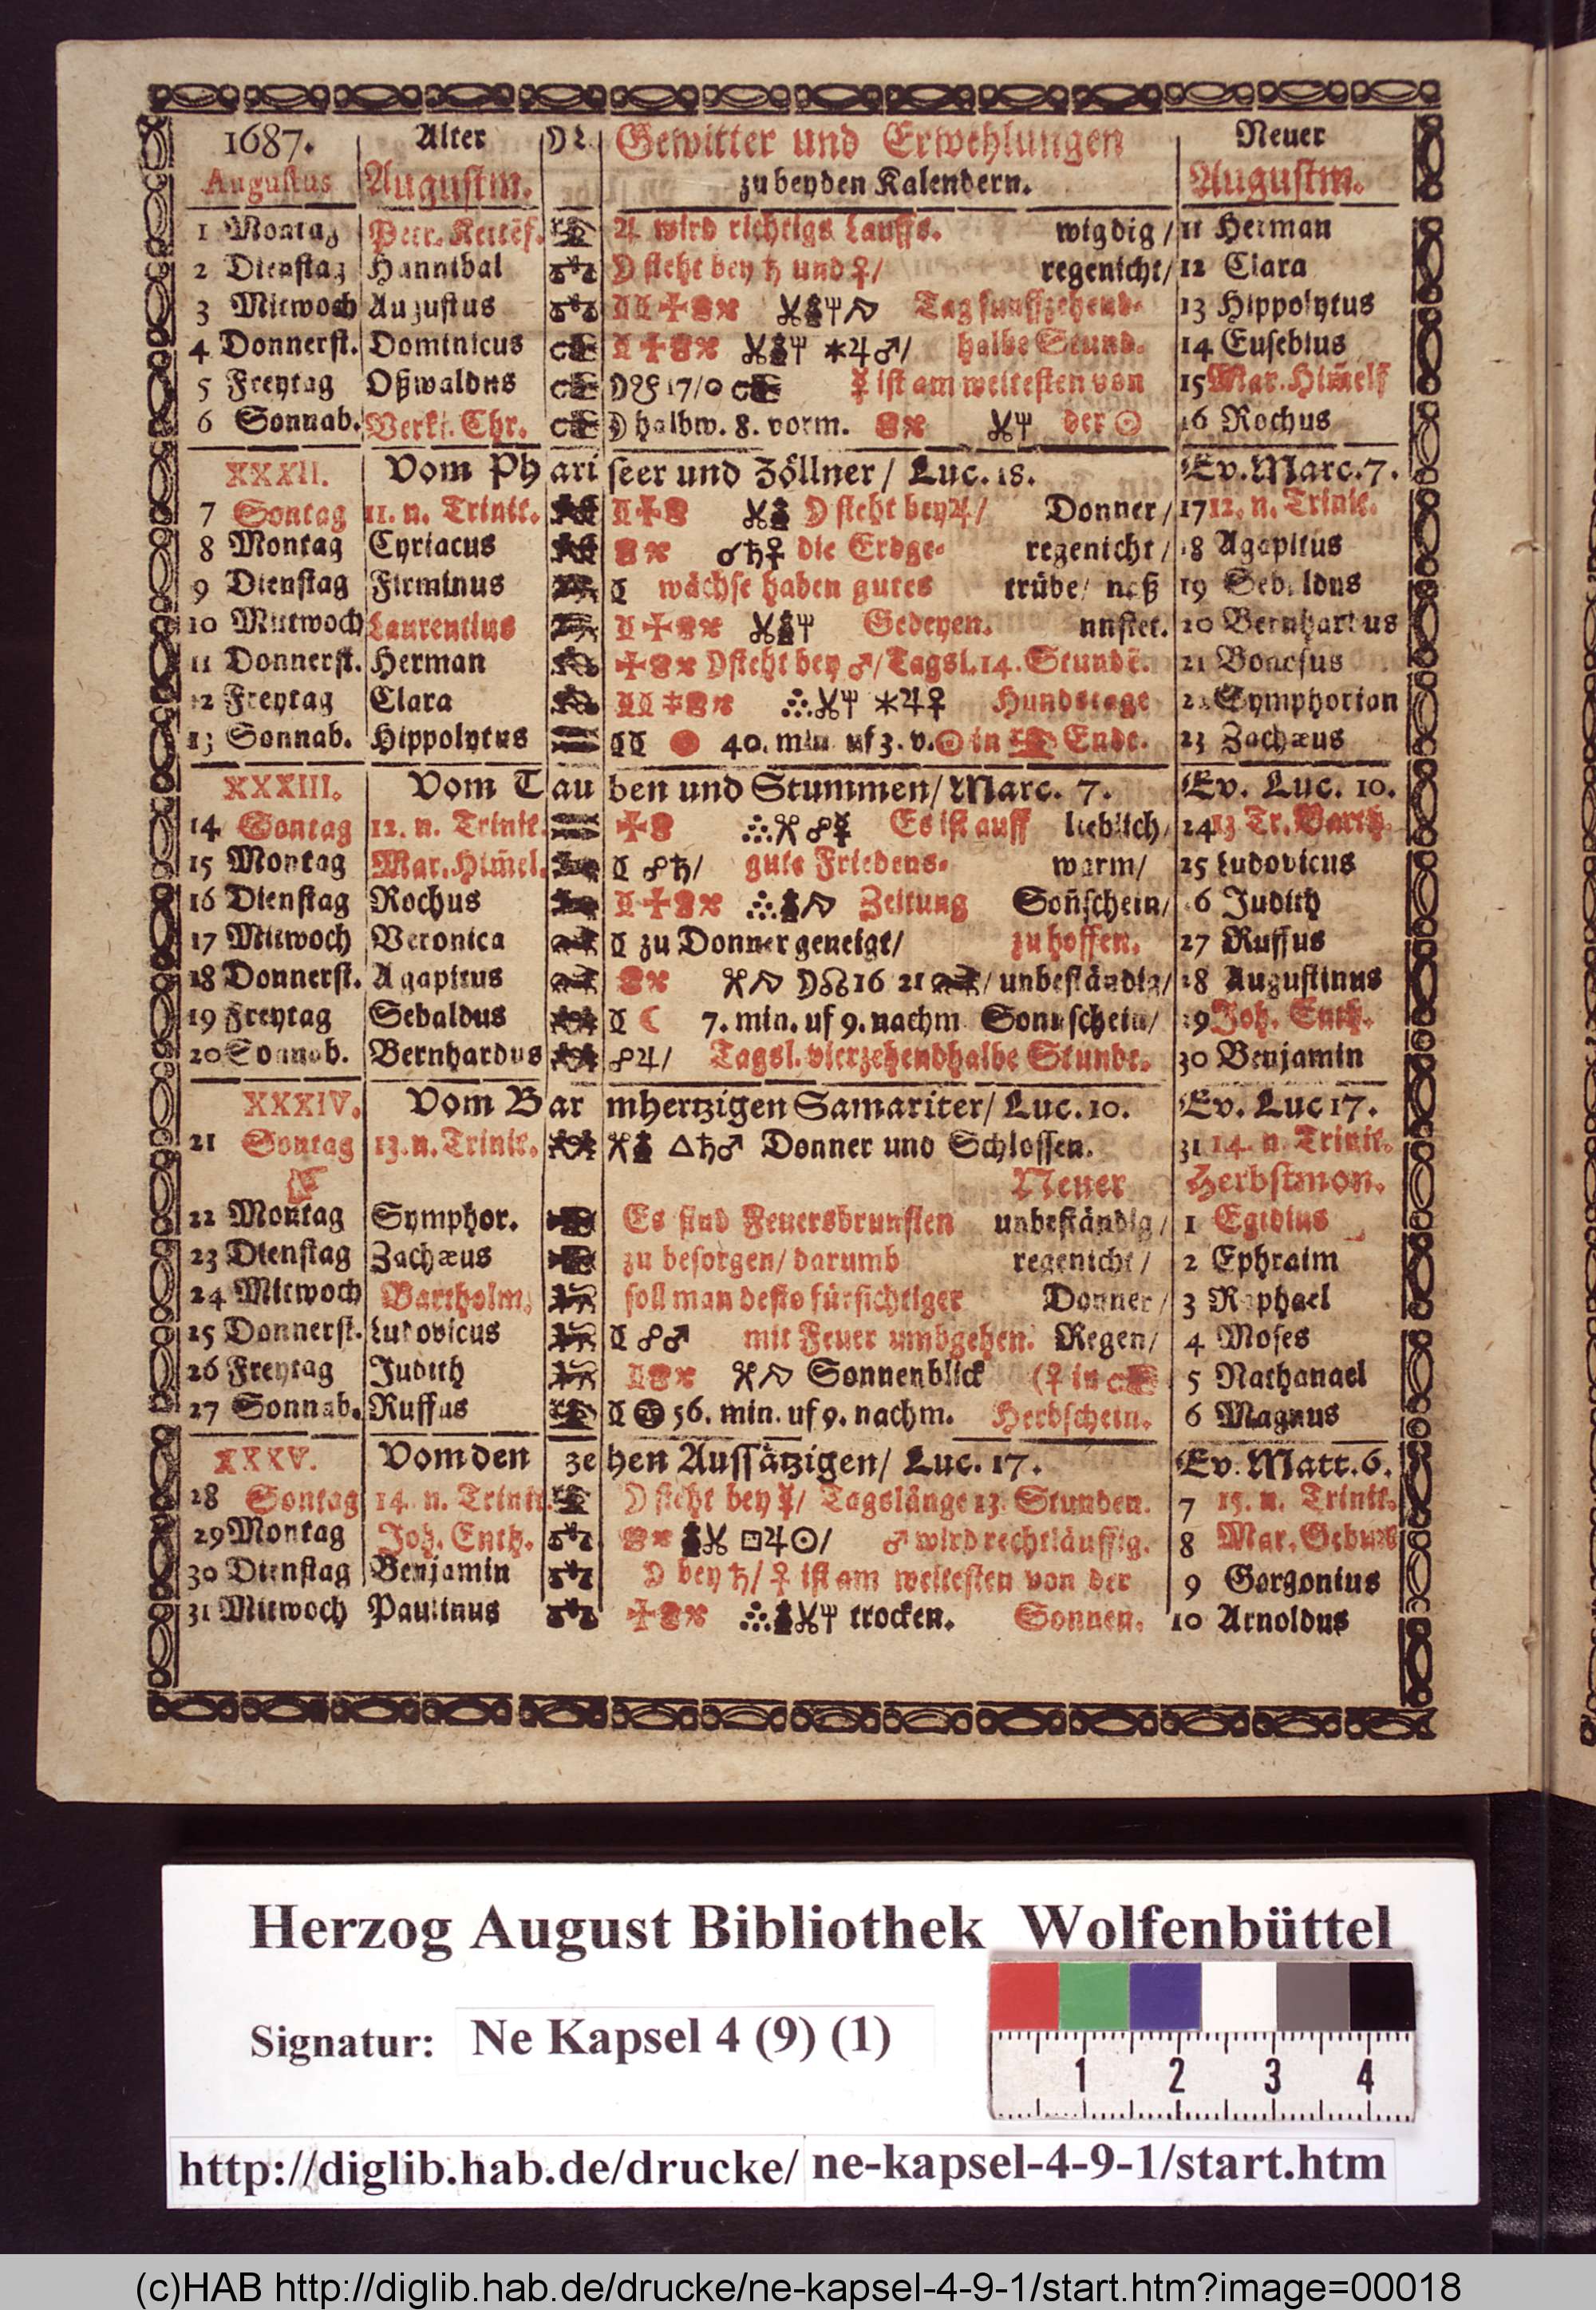 1687. Alter ☽ L. Gewitter und Erwehlungen Neuer
Augustus Augustm. zu beyden Kalendern. Augustm.
1 Montag Petr. Kettēf. ♃ wird richtigs Lauffs. wigdig / 11 Herman
2 Dienstag Hannibal ☽ steht bey ♄ und ♀/ regenicht/ 12 Clara
3 Mitwoch Augustus Tag funffzehend- 13 Hippolytus
4 Donnerst. Dominicus ✶♃♂/ halbe Stund. 14 Eusebius
5 Freytag Oßwaldus ☽☋ 17/0 ☿ ist am weitesten von 15 Mar. Him̄elf
6 Sonnab. Verkl. Chr. ☽ halbw. 8. vorm. der ☉ 16 Rochus
XXXII. Vom Phariseer und Zöllner / Luc. 18. Ev. Marc. 7.
7 Sontag 11. n. Trinit. ☽ steht bey ♃/ Donner / 17 12. n. Trinit.
8 Montag Cyriacus ☌♄♀ die Erdge- regenicht / 18 Agapitus
9 Dienstag Firminus wächse haben gutes trübe/ naß 19 Sebaldus
10 Mittwoch Laurentius Gedeyen. nnstet. 20 Bernhardus
11 Donnerst. Herman ☽ steht bey ♂/ Tagsl. 14. Stundē. 21 Bonosus
12 Freytag Clara ✶♃♀ Hundstage 22 Symphorian
13 Sonnab. Hippolytus 40. min uf 3. v. ☉ in Ende. 23 Zachæus
XXXIII. Vom Tauben und Stummen/ Marc. 7. Ev. Luc. 10.
14 Sontag 12. n. Trinit. ☍☿ Es ist auff lieblich/ 24 13 Tr. Barth.
15 Montag Mar. Him̄el. ☍♄/ gute Friedens- warm/ 25 Ludovicus
16 Dienstag Rochus Zeitung Soñschein/ 26 Judith
17 Mitwoch Veronica zu Donner geneigt/ zu hoffen. 27 Ruffus
18 Donnerst. Agapitus ☽☊ 16 21 / unbeständig/ 28 Augustinus
19 Freytag Sebaldus ☾ 7. min. uf 9. nachm Sonnschein/ 29 Joh. Enth.
20 Sonnab. Bernhardus ☍♃/ Tagsl. vierzehendhalbe Stunde. 30 Benjamin
XXXIV. Vom Barmhertzigen Samariter/ Luc. 10. Ev. Luc 17.
21 Sontag 13. n. Trinit. △♄♂ Donner und Schlossen. 31 14. n Trinit.
Neuer Herbstmon.
22 Montag Symphor. Es sind Feuersbrunsten unbeständig / 1 Egidius
23 Dienstag Zachæus zu besorgen/ darumb regenicht / 2 Ephraim
24 Mitwoch Bartholm. soll man desto fürsichtiger Donner / 3 Raphael
25 Donnerst. Ludovicus ☍♂ mit Feuer umbgehen. Regen/ 4 Moses
26 Freytag Judith Sonnenblick (☿ in 5 Nathanael
27 Sonnab. Ruffus 56. min. uf 9. nachm. Herbschein. 6 Magnus
XXXV. Vom den zehen Aussätzigen/ Luc. 17. Ev. Matt. 6.
28 Sontag 14. n. Trinit. ☽ steht bey ☿/ Tagslänge 13. Stunden. 7 15. n. Trinit.
29 Montag Joh. Enth. □♃☉/ ♂ wird rechtläuffig. 8 Mar. Geburt
30 Dienstag Benjamin ☽ bey ♄/ ♀ ist am weitesten von der 9 Gorgonius
31 Mitwoch Paulinus trocken. Sonnen. 10 Arnoldus
Herzog August Bibliothek Wolfenbüttel
Signatur: Ne Kapsel 4 (9) (1)
1 2 3 4
http://diglib.hab.de/drucke/ ne-kapsel-4-9-1/start.htm
(c)HAB http://diglib.hab.de/drucke/ne-kapsel-4-9-1/start.htm?image=00018